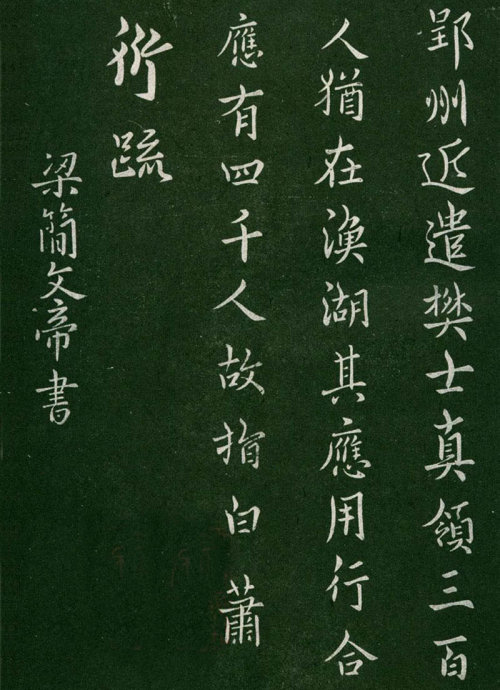 郢州近遣樊士真領三百
人猶在漁湖其應用行合
應有四千人故指白蕭
衍疏
梁簡文帝書